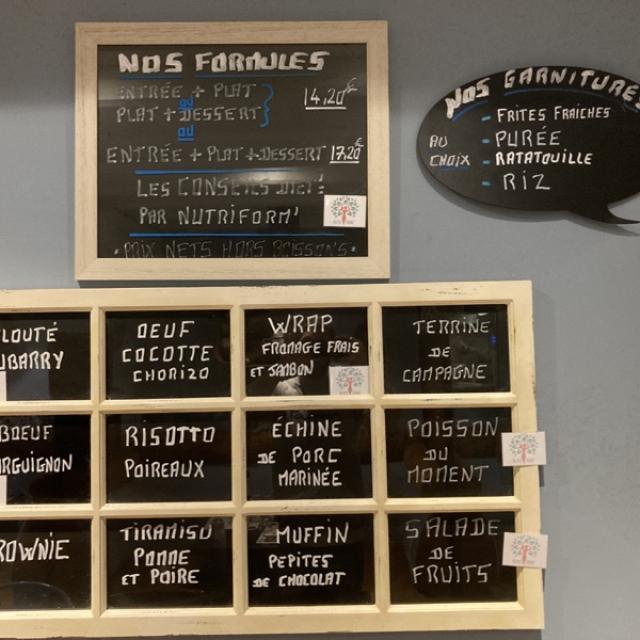 NOS FORMULES
ENTRÉE + PLAT
ou
PLAT + DESSERT
14,20€
ou
ENTRÉE + PLAT + DESSERT 17,20€
LES CONSEILS DIET!
PAR NUTRIFORM'
*PRIX NETS HORS BOISSONS*
NOS GARNITURE
AU
CHOIX
- FRITES FRAICHES
- PURÉE
- RATATOUILLE
- RIZ
LOUTÉ
UBARRY
OEUF
COCOTTE
CHORIZO
WRAP
FROMAGE FRAIS
ET JAMBON
TERRINE
DE
CAMPAGNE
BOEUF
RGUIGNON
RISOTTO
POIREAUX
ÉCHINE
DE PORC
MARINÉE
POISSON
DU
MOMENT
ROWNIE
TIRAMISU
POMME
ET POIRE
MUFFIN
PEPITES
DE CHOCOLAT
SALADE
DE
FRUITS